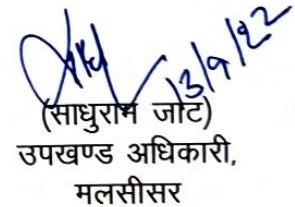 13/9/22
(साधुराम जाट)
उपखण्ड अधिकारी,
मलसीसर